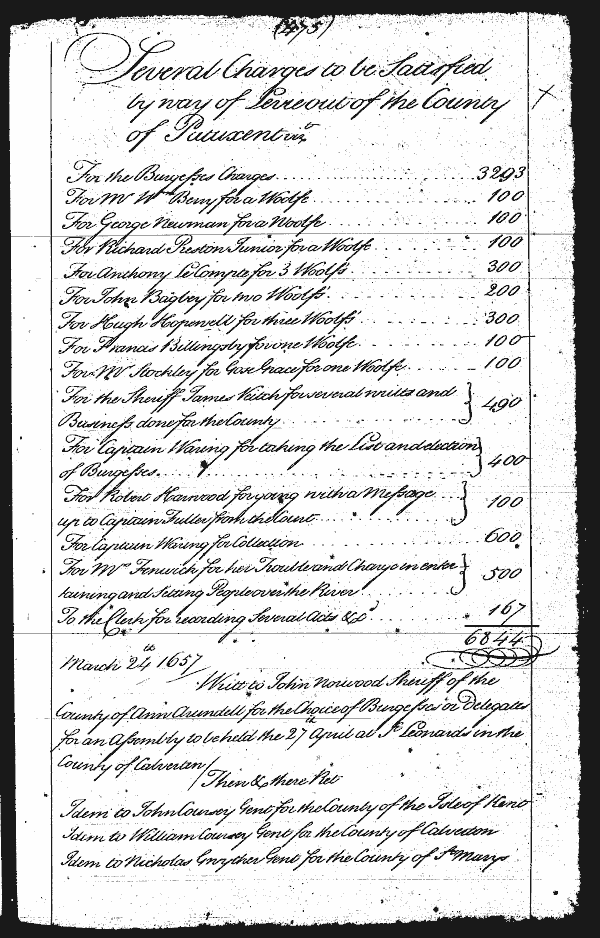 (475)
Several Charges to be Sattisfied
by way of Levie out of the County
of Putuxent vizt
For the Burgesses Charges 3293
For Mr Wm Berry for a Woolfe 100
For George Newman for a Woolfe 100
For Richard Preston Junior for a Woolfe 100
For Anthony Le Compte for 3 Woolfs 300
For John Bagbey for two Woolfs 200
For Hugh Hopewell for three Woolfs 300
For Francis Billingsby for one Woolfe 100
For Mr Stockley for Gore Grace for one Woolfe 100
For the Sheriff James Veitch for several writts and
Business done for the County } 490
For Captain Waring for taking the List and election
of Burgesses } 400
For Robert Harwood for going with a Message
up to Captain Fuller from the Court } 100
For Captain Waring for Collection 600
For Mrs Fenwick for her Trouble and Charge in enter
taining and Setting People over the River } 500
To the Clerk for recording Several Acts &ca 167
6844
March 24th 1657
Writt to John Norwood Sheriff of the
County of Ann Arundell for the Choice of Burgesses or Delegates
for an Assembly to be held the 27th April at St Leonards in the
County of Calverton
Then & there Ret
Idem to John Coursey Gent for the County of the Isle of Kent
Idem to William Coursey Gent for the County of Calverton
Idem to Nicholas Gwyther Gent for the County of St Marys